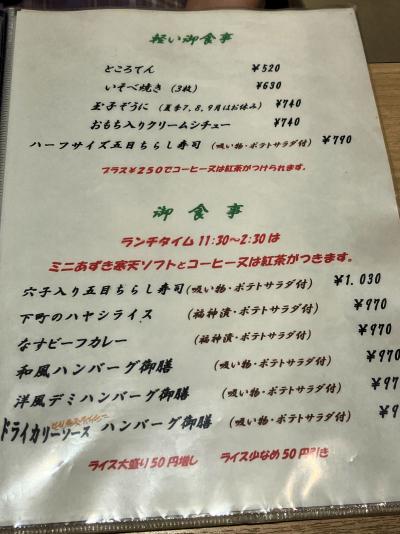 軽い御食事
ところてん ¥520
いそべ焼き (3枚) ¥630
玉子ぞうに (夏季7.8.9月はお休み) ¥740
おもち入りクリームシチュー ¥740
ハーフサイズ五目ちらし寿司 (吸い物・ポテトサラダ付) ¥790
プラス¥250でコーヒー又は紅茶がつけられます。
御食事
ランチタイム 11:30〜2:30は
ミニあずき寒天ソフトとコーヒー又は紅茶がつきます。
穴子入り五目ちらし寿司(吸い物・ポテトサラダ付) ¥1.030
下町のハヤシライス (福神漬・ポテトサラダ付) ¥970
なすビーフカレー (福神漬・ポテトサラダ付) ¥970
和風ハンバーグ御膳 (吸い物・ポテトサラダ付) ¥970
洋風デミハンバーグ御膳 (吸い物・ポテトサラダ付) ¥97
ドライカリーソース ハンバーグ御膳 (吸い物・ポテトサラダ付) ¥9
ライス大盛り50円増し ライス少なめ50円引き